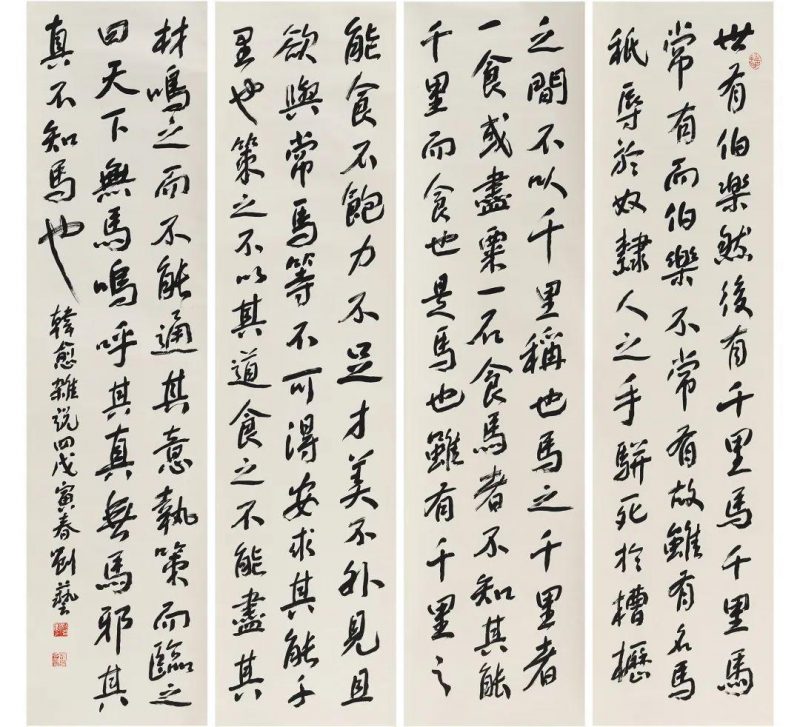 世有伯樂然後有千里馬千里馬
常有而伯樂不常有故雖有名馬
祇辱於奴隸人之手駢死於槽櫪
之間不以千里稱也馬之千里者
一食或盡粟一石食馬者不知其能
千里而食也是馬也雖有千里之
能食不飽力不足才美不外見且
欲與常馬等不可得安求其能千
里也策之不以其道食之不能盡其
材鳴之而不能通其意執策而臨之
曰天下無馬嗚呼其真無馬邪其
真不知馬也 韓愈雜說四戊寅春劉藝